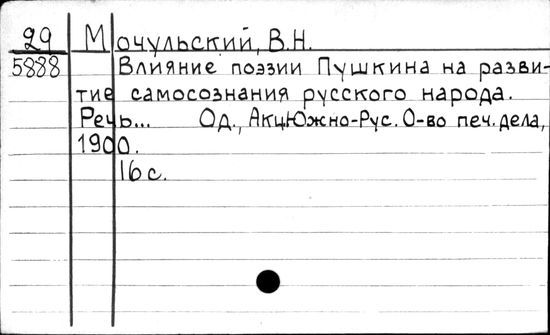 29 Мочульский, В.Н.
5888 Влияние поэзии Пушкина на разви-
тие самосознания русского народа.
Речь... Од., Акц.Южно-Рус. О-во печ. дела,
1900.
16 с.